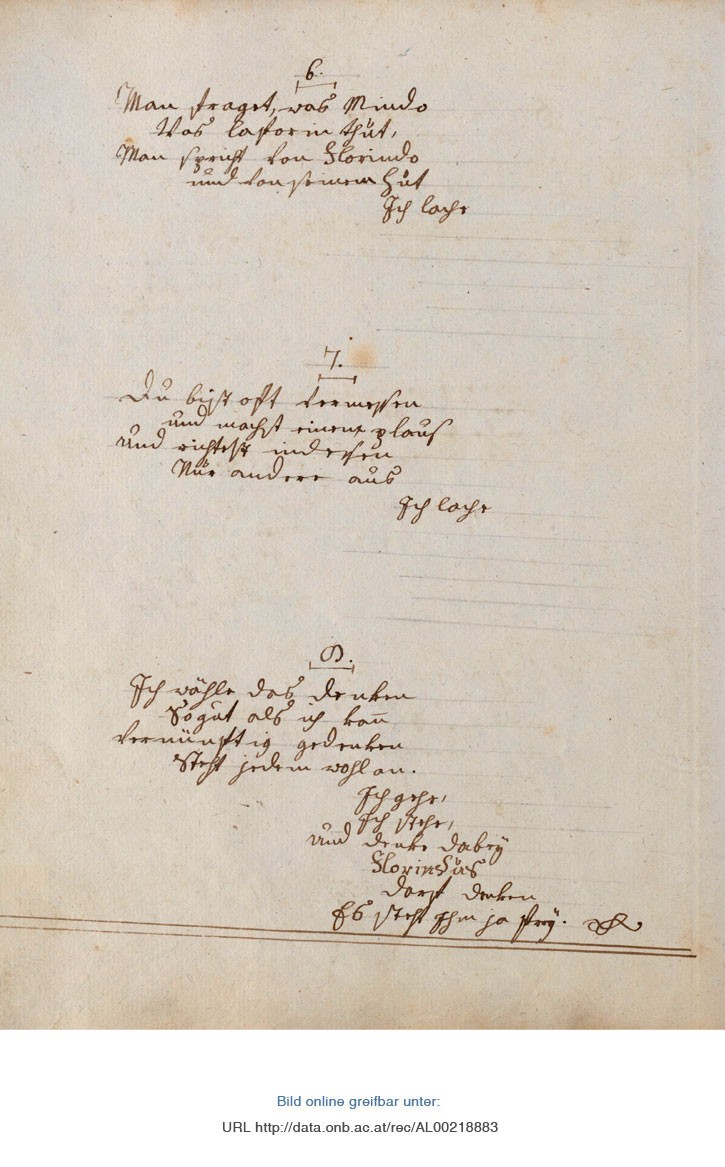 6.
Man fraget, was Mindo
Was lastorin thüt,
Man spricht von Florindo
und von seinem hüt
Ich lache
7.
Du bist oft vermessen
und machst einene plaus
und richtest indessen
Nür andere aus
Ich lache
8.
Ich wähle das denken
So güt als ich kan̄
vernünftig gedenken
Steht jedem wohl an.
Ich gehe,
Ich stehe,
und denke dabeÿ
Florindüs
darf denken
Es steht ihm ja freÿ.
Bild online greifbar unter:
URL http://data.onb.ac.at/rec/AL00218883